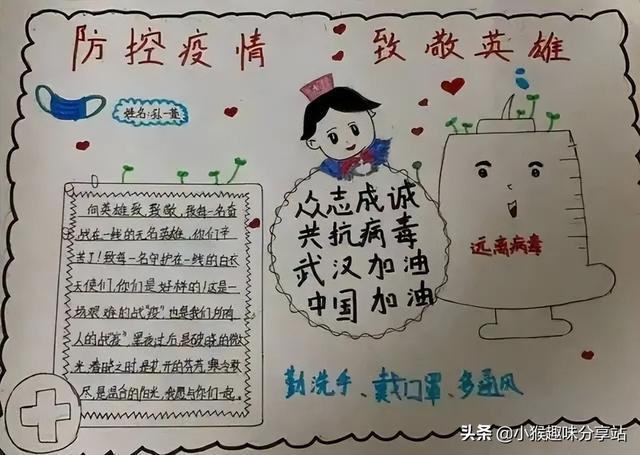 防控疫情 致敬英雄
姓名:孙一萱
向英雄致敬,致每一名奋
战在一线的无名英雄,你们辛
苦了!致每一名守护在一线的白衣
天使们,你们是好样的!这是一
场艰难的战"疫"也是我们所有
人的战疫"黑夜过后,是破晓的微
光,春晓之时,是花开的芬芳,寒冬散
尽,是温合的阳光,我愿与你们一起。
众志成诚
共抗病毒
武汉加油
中国加油
远离病毒
勤洗手、戴口罩、多通风
头条 @小猴趣味分享站